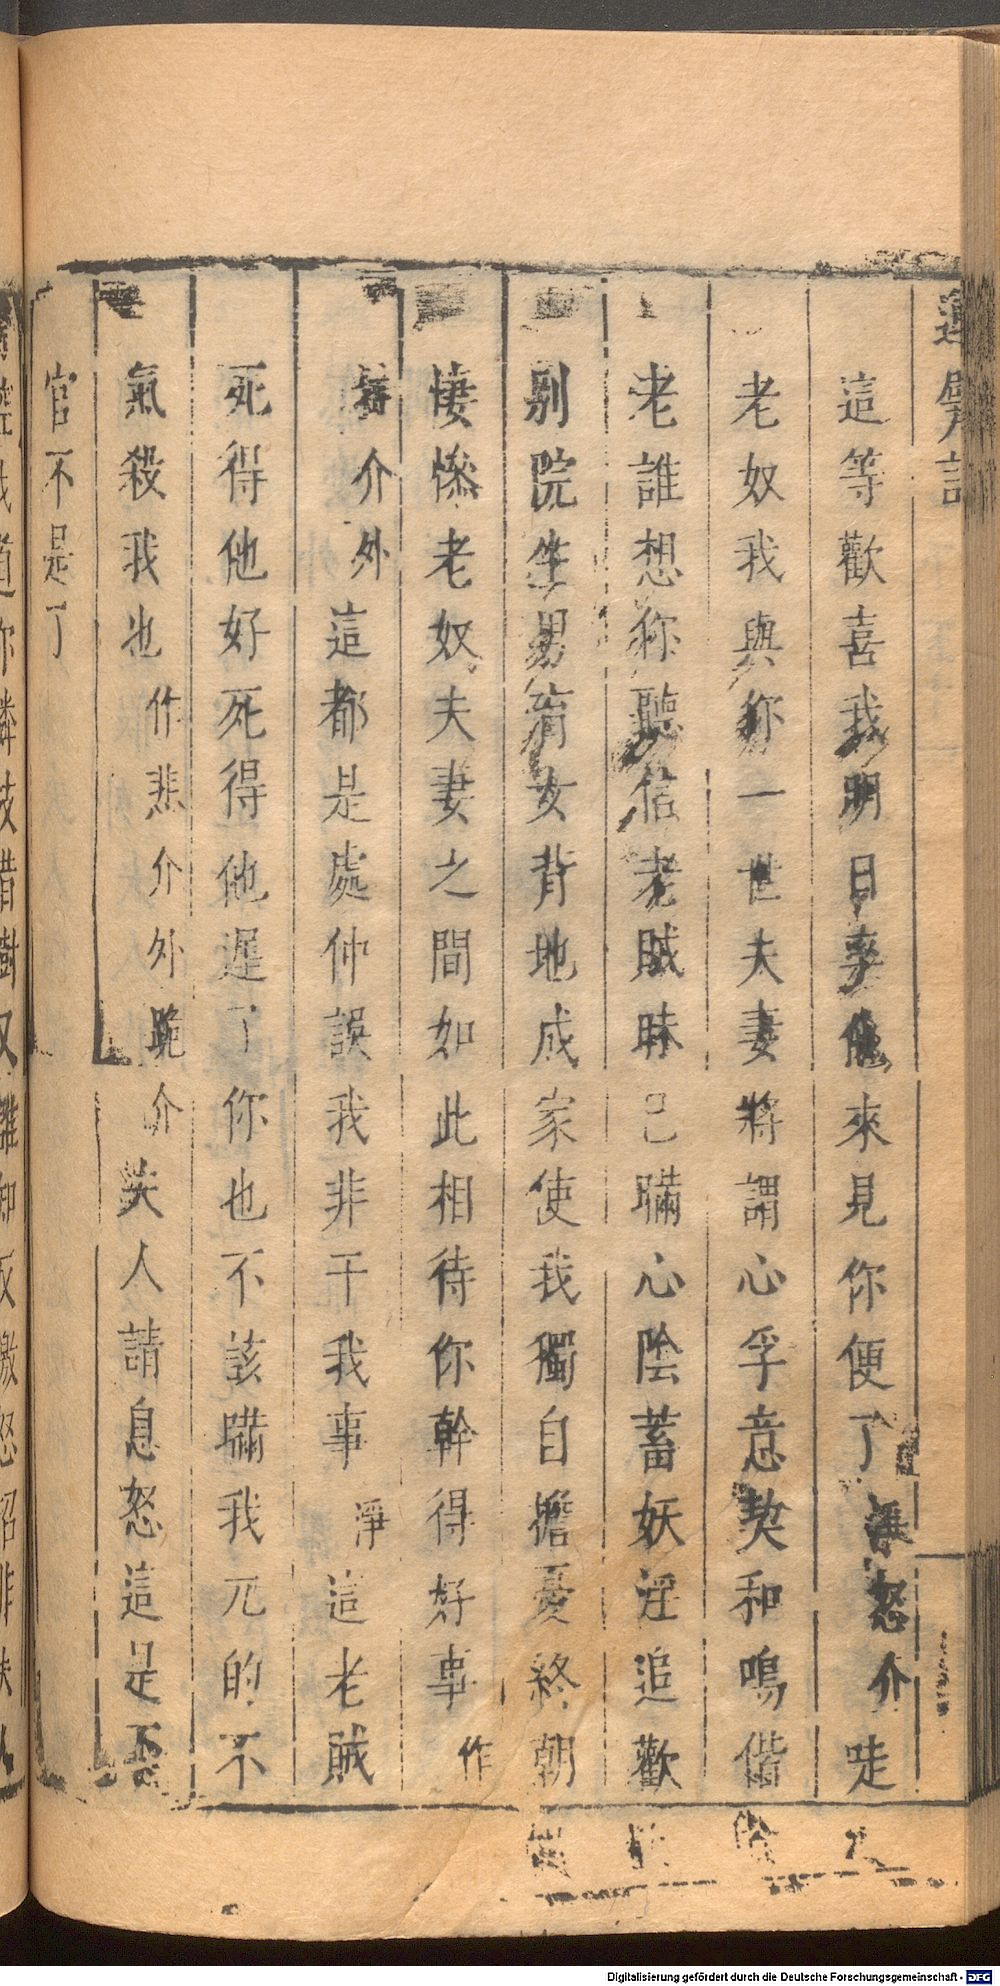 這等歡喜我明日率他來見你便了淨怒介哇
老奴我與你一世夫妻將謂心孚意契和鳴偕
老誰想你聽信老賊昧己瞞心陰蓄妖淫追歡
別院生男育女背地成家使我獨自擔憂終朝
悽慘老奴夫妻之間如此相待你幹得好事作
介外這都是處仲誤我非干我事淨這老賊
死得他好死得他遲了你也不該瞞我兀的不
氣殺我也作悲介外跪介夫人請息怒這是下
官不是了
Digitalisierung gefördert durch die Deutsche Forschungsgemeinschaft - DFG